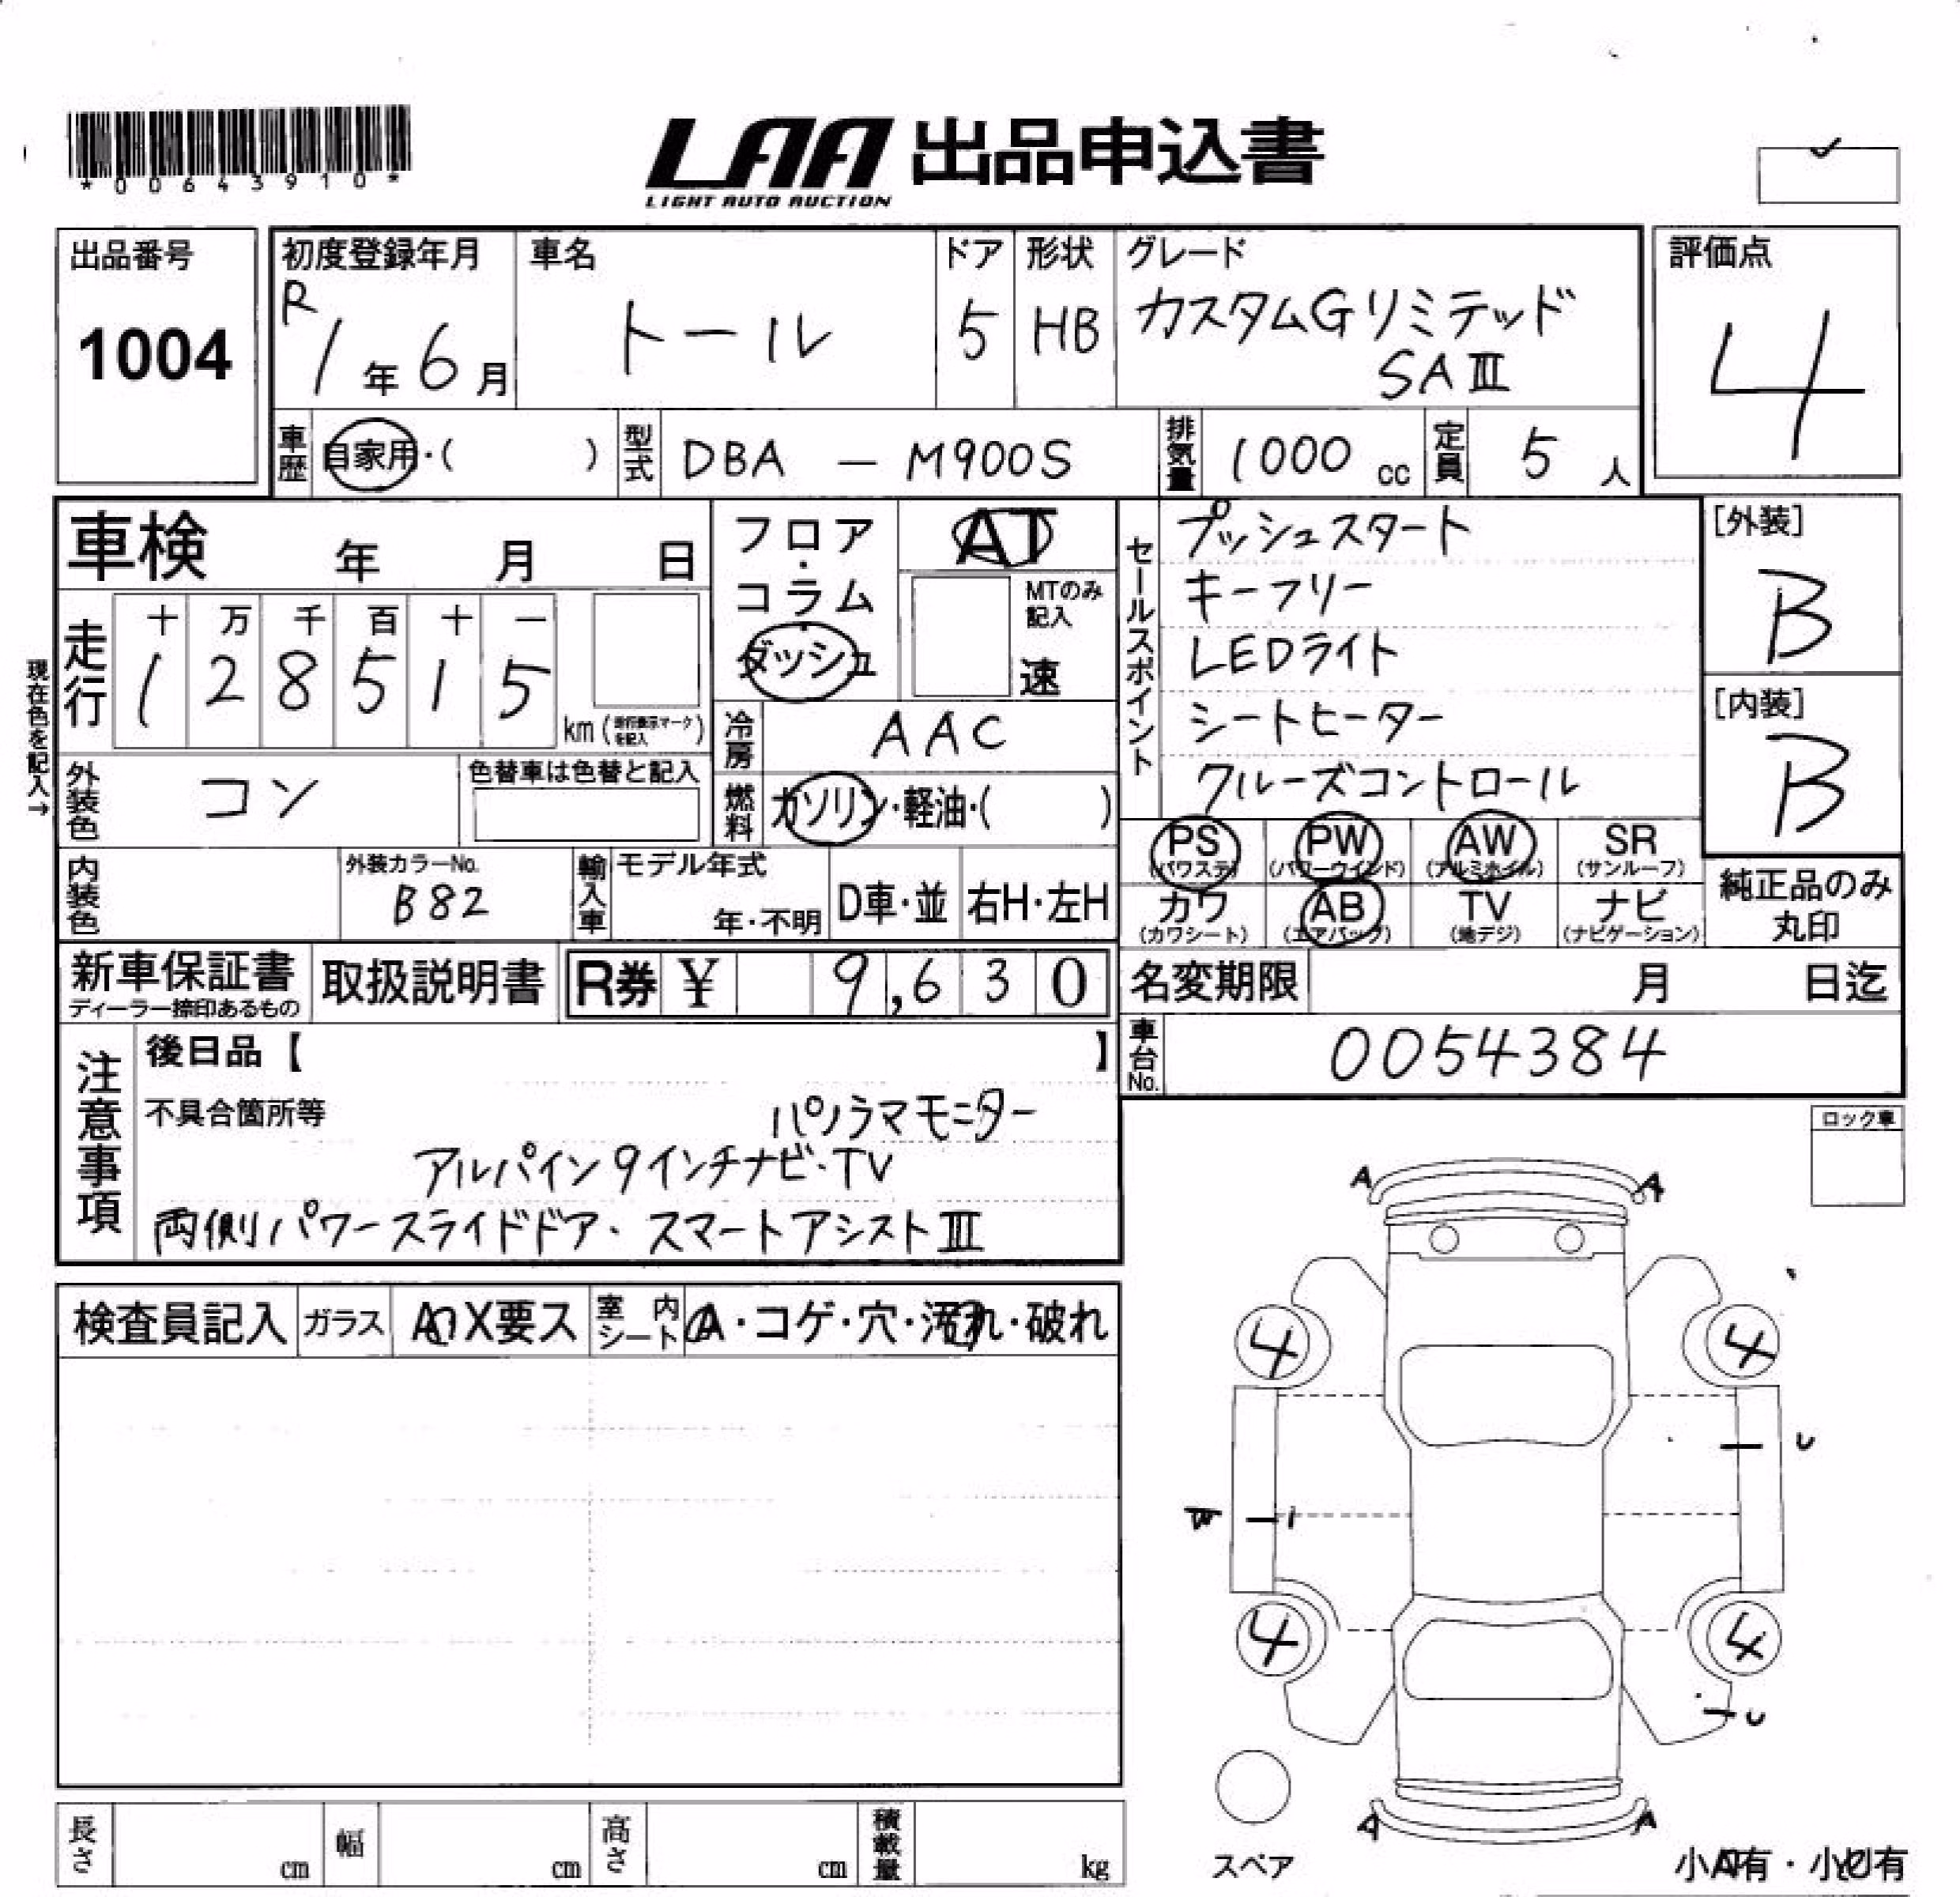 *00643910*
LAA 出品申込書
LIGHT AUTO AUCTION
出品番号
1004
初度登録年月
R1年6月
車名
トール
ドア
5
形状
HB
グレード
カスタムGリミテッド
SAⅢ
評価点
4
車歴
自家用・( )
型式
DBA — M900S
排気量
1000 cc
定員
5 人
車検 年 月 日
フロア・コラム
ダッシュ
AT
MTのみ記入
速
セールスポイント
プッシュスタート
キーフリー
LEDライト
シートヒーター
クルーズコントロール
[外装]
B
[内装]
B
現在色を記入→
走行
十 万 千 百 十 一
1 2 8 5 1 5
km
冷房
AAC
外装色
コン
色替車は色替と記入
燃料
ガソリン・軽油・( )
PS
(パワステ)
PW
(パワーウインド)
AW
(アルミホイル)
SR
(サンルーフ)
カワ
(カワシート)
AB
(エアバッグ)
TV
(地デジ)
ナビ
(ナビゲーション)
純正品のみ
丸印
内装色
外装カラーNo.
B82
輸入車
モデル年式
年・不明
D車・並
右H・左H
新車保証書
ディーラー捺印あるもの
取扱説明書
R券 ¥ 9,630
名変期限 月 日迄
車台No.
0054384
注意事項
後日品【 】
不具合箇所等
パノラマモニター
アルパイン9インチナビ・TV
両側パワースライドドア・スマートアシストⅢ
ロック車
検査員記入
ガラス
A・X要ス
室内シート
A・コゲ・穴・汚れ・破れ
A A
4 4
U
4 4
U
A A
スペア
小A有・小U有
長さ cm
幅 cm
高さ cm
積載量 kg